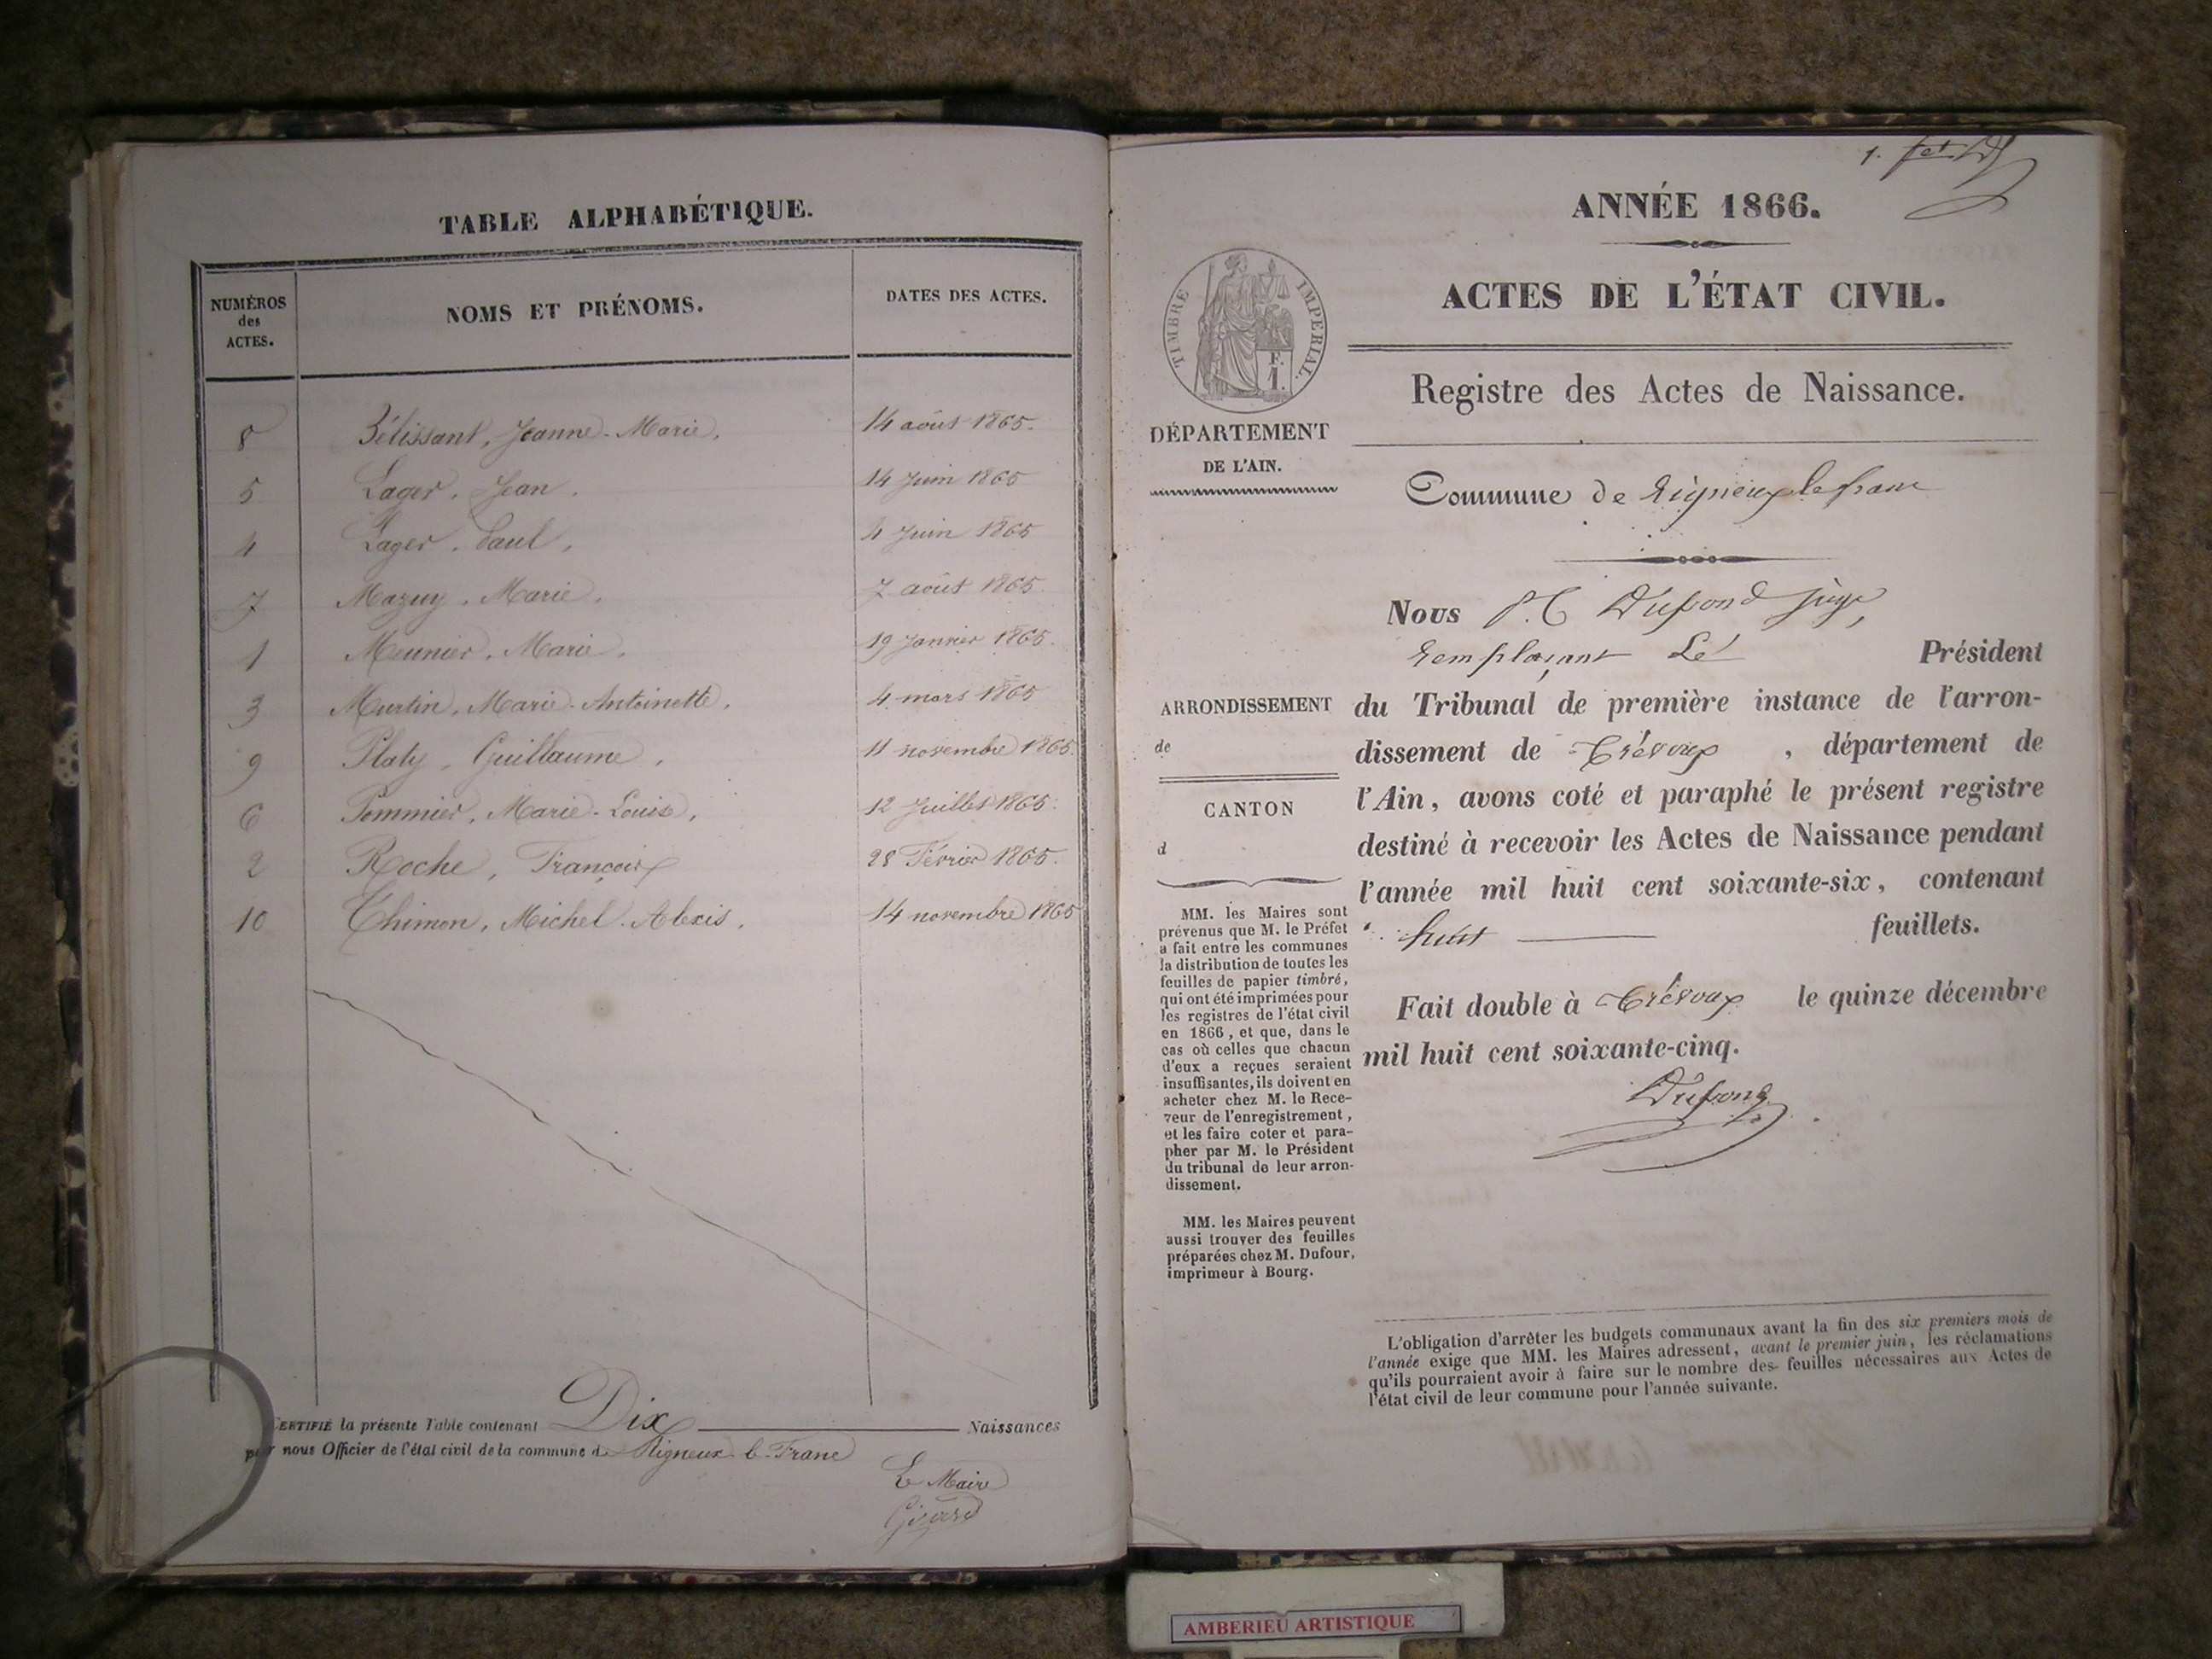 TABLE ALPHABÉTIQUE.
NUMÉROS des ACTES.
NOMS ET PRÉNOMS.
DATES DES ACTES.
8 Bélissant, Jeanne-Marie, 14 août 1865.
5 Lager, Jean. 14 Juin 1865
4 Lager, Paul, 4 Juin 1865
7 Mazuy, Marie, 7 août 1865
1 Meunier, Marie, 19 Janvier 1865.
3 Murtin, Marie-Antoinette, 4 mars 1865
9 Platy, Guillaume, 11 novembre 1865.
6 Pommier, Marie-Louise, 12 Juillet 1865.
2 Roche, François 28 Février 1865.
10 Thimon, Michel-Alexis, 14 novembre 1865
CERTIFIÉ la présente Table contenant Dix Naissances
par nous Officier de l'état civil de la commune de Rigneux-le-Franc
Le Maire
1.
ANNÉE 1866.
TIMBRE IMPERIAL.
F.
1.
ACTES DE L'ÉTAT CIVIL.
Registre des Actes de Naissance.
DÉPARTEMENT
DE L'AIN.
Commune de Rigneux le franc
Nous Dupond juge,
remplaçant Le Président
ARRONDISSEMENT
de
CANTON
d
du Tribunal de première instance de l'arron-
dissement de Trévoux, département de
l'Ain, avons coté et paraphé le présent registre
destiné à recevoir les Actes de Naissance pendant
l'année mil huit cent soixante-six, contenant
huit feuillets.
Fait double à Trévoux le quinze décembre
mil huit cent soixante-cinq.
Dupond
MM. les Maires sont
prévenus que M. le Préfet
a fait entre les communes
la distribution de toutes les
feuilles de papier timbré,
qui ont été imprimées pour
les registres de l'état civil
en 1866, et que, dans le
cas où celles que chacun
d'eux a reçues seraient
insuffisantes, ils doivent en
acheter chez M. le Rece-
veur de l'enregistrement,
et les faire coter et para-
pher par M. le Président
du tribunal de leur arron-
dissement.
MM. les Maires peuvent
aussi trouver des feuilles
préparées chez M. Dufour,
imprimeur à Bourg.
L'obligation d'arrêter les budgets communaux avant la fin des six premiers mois de
l'année exige que MM. les Maires adressent, avant le premier juin, les réclamations
qu'ils pourraient avoir à faire sur le nombre des feuilles nécessaires aux Actes de
l'état civil de leur commune pour l'année suivante.
AMBERIEU ARTISTIQUE